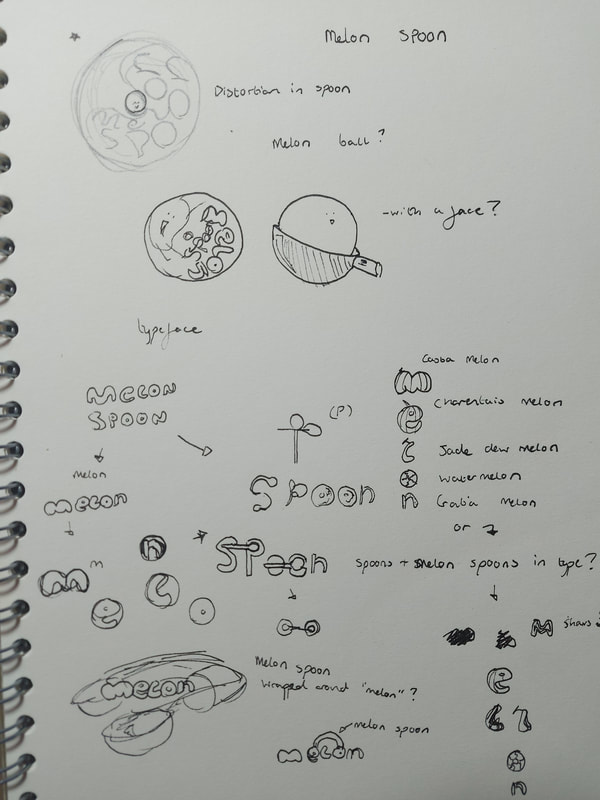 Melon Spoon
Distortion in spoon
Melon ball?
melon
- with a face?
typeface
Casba Melon
m
MELON
(P)
e
Charentais melon
SPOON
l
Jade dew melon
Melon
o
watermelon
Spoon
n
Galia Melon
melon
or
n
Spoon
spoons + melon spoons in type?
m
m
e
l
o
M
Melon spoon
e
wrapped around "melon"?
melon
l
l
melon spoon
melon
o
n